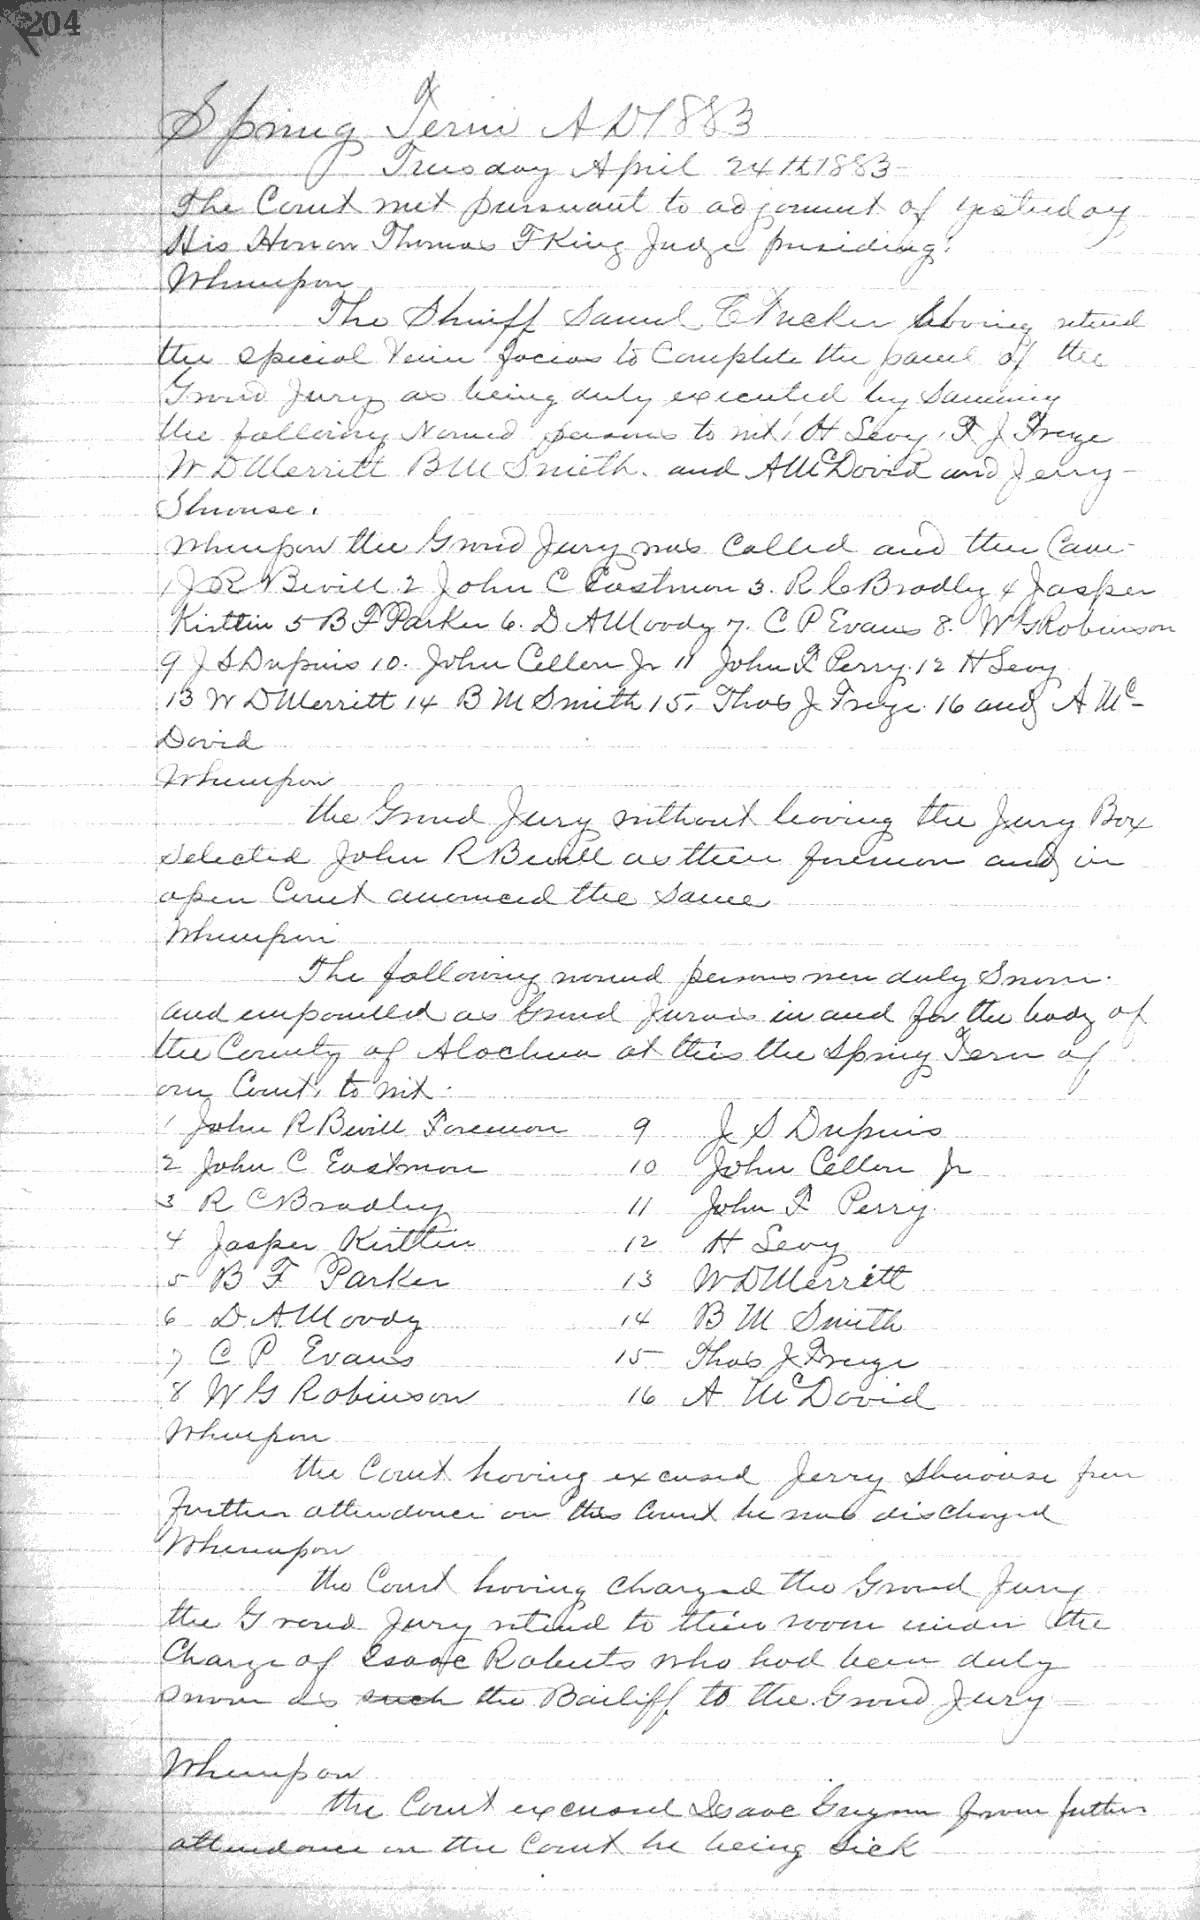 204
Spring Term A D 1883
Tuesday April 24th 1883
The Court met pursuant to adjournment of yesterday
His Honor Thomas F King Judge presiding.
Whereupon
The Sheriff Samuel C Tucker having returned
the special Venire facias to Complete the panel of the
Grand Jury as being duly executed by Summing
the following Named persons to wit: H Levy, T J Freye
W D Merritt B M Smith. and A McDavid and Jerry
Shuouse.
Whereupon the Grand Jury was Called and then Came
1 J R Bevill 2 John C Eastmon 3. R C Bradley 4 Jasper
Kirttin 5 B F Parker 6. D A Moody 7. C P Evans 8. W G Robinson
9 J S Dupuis 10. John Cellon Jr 11 John F Perry. 12 H Levy
13 W D Merritt 14 B M Smith 15. Thos J Freye. 16 and A Mc
David
Whereupon
the Grand Jury without leaving the Jury Box
selected John R Bevill as their foreman and in
open Court anounced the Same
Whereupon
The following named persons were duly Sworn
and empanelled as Grand Jurors in and for the body of
the County of Alachua at this the Spring Term of
our Court, to wit:
1 John R Bevill Foreman 9 J S Dupuis
2 John C Eastmon 10 John Cellon Jr
3 R C Bradley 11 John F Perry
4 Jasper Kirttin 12 H Levy
5 B F Parker 13 W D Merritt
6 D. A Moody 14 B M Smith
7 C P Evans 15 Thos J Freye
8 W G Robinson 16 A McDavid
Whereupon
the Court having excused Jerry Shuouse from
further attendance on this Court he was discharged
Whereupon
the Court having charged the Grand Jury
the Grand Jury retired to their room under the
Charge of Isaac Roberts who had been duly
sworn as such the Bailiff to the Grand Jury
Whereupon
the Court excused Isaac from further
attendance on the Court he being Sick